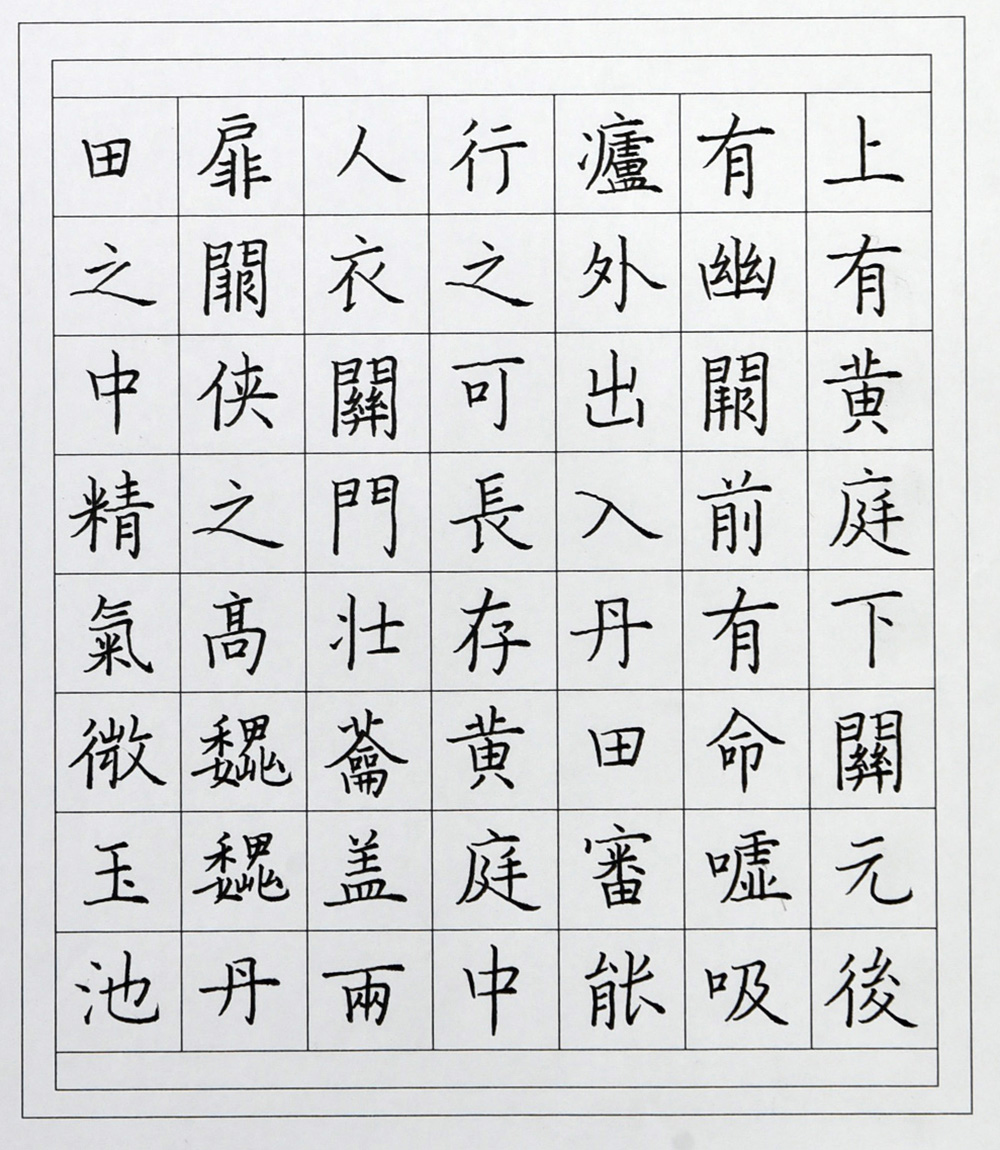 上有黄庭下關元後
有幽闕前有命嘘吸
廬外出入丹田審能
行之可長存黄庭中
人衣關門壯蘥盖兩
扉闕侠之髙魏魏丹
田之中精氣微玉池